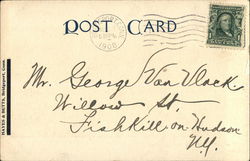 POST CARD
1908
HAYES & BETTS, Bridgeport, Conn.
Mr. George Van Vlack.
Willow St.
Fishkill on Hudson
N.Y.